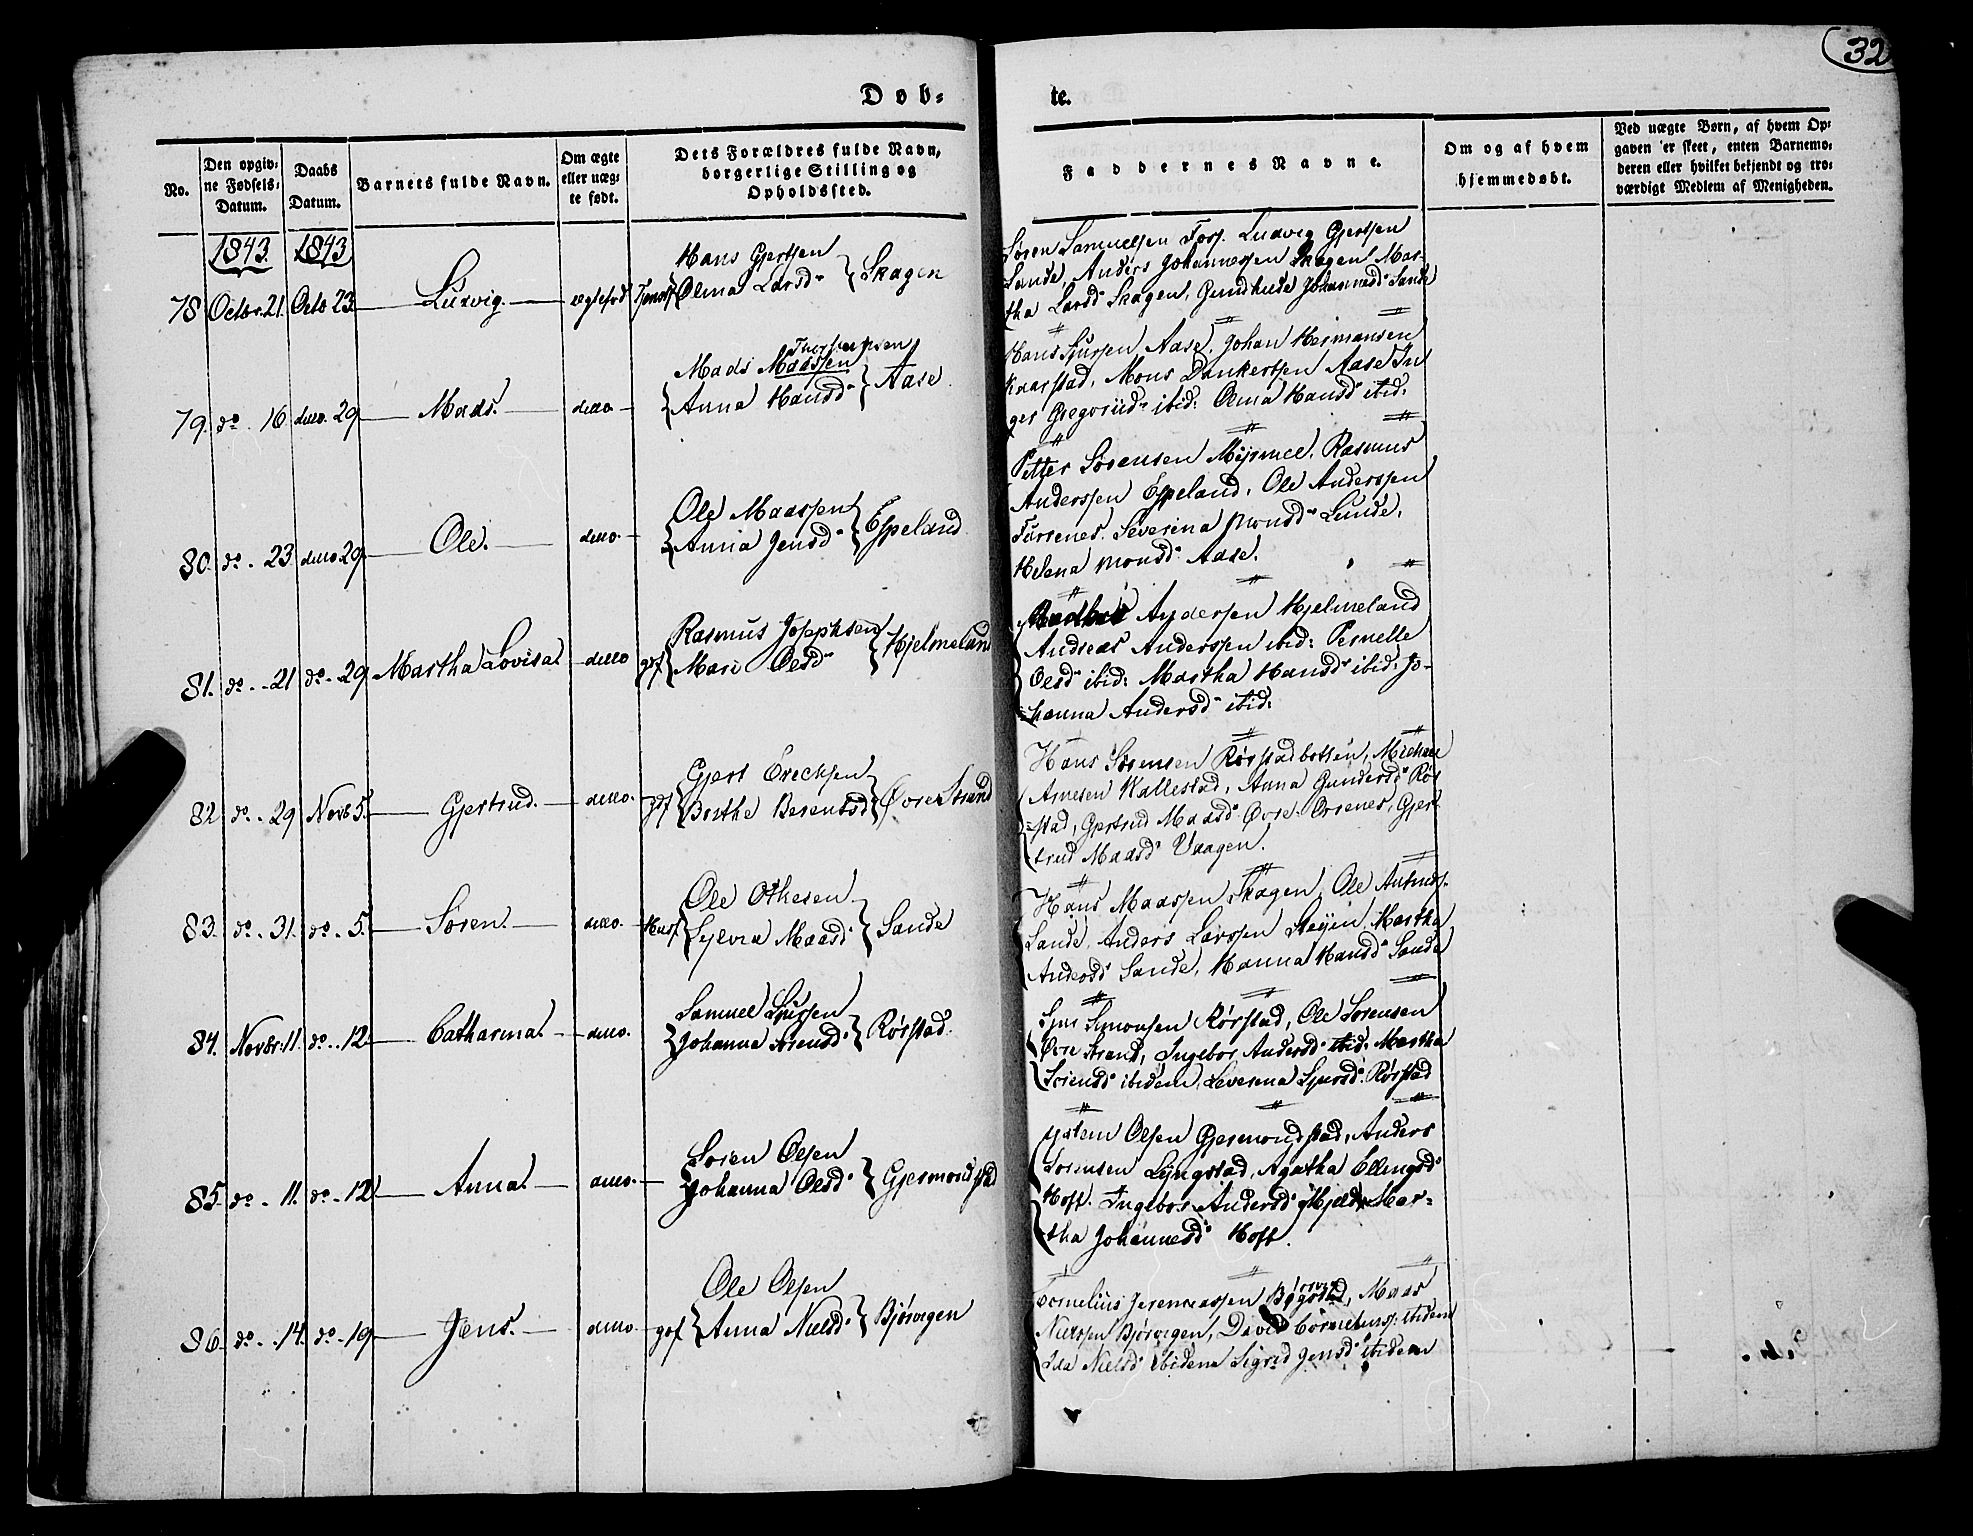 32.
Døb=
te.
No.
Den opgiv=
ne Fødsels=
Datum.
Daabs
Datum.
Barnets fulde Navn.
Om ægte
eller uæg=
te født.
Dets Forældres fulde Navn,
borgerlige Stilling og
Opholdssted.
Faddernes Navne.
Om og af hvem
hjemmedøbt.
Ved uægte Børn, af hvem Op=
gaven er skeet, enten Barnemo=
deren eller hvilket bekjendt og tro=
værdigt Medlem af Menigheden.
1843. 1843
78 Octbr. 21. Octb 23. Ludvig. ægtefød
Hans Gjertsen
Olina Larsd. Skagen
Søren Samuelsen Ludvig Gjertsen
Sande, Anders Johannessen Skagen Mar-
tha Larsd. Skagen, Gundhilde Johannesd. Sande
79. do. 16 ditto. 29 Mads. ditto
Mads Maassen
Anna Hansd. Aase.
Hans Sjursen Aase, Johan Hermansen
Kaarstad, Mons Dankertsen Aase In
ger ibid: Olina Hansd. ibid:
80. do. 23. ditto 29 Ole. ditto.
Ole Maassen
Anna Jensd. Espeland
Petter Sørensen Rasmus
Anderssen Espeland, Ole Anderssen
Severina Monsd. Lunde,
Helena Monsd. Aase.
81. do. 21 do. 29 Martha Lovisa. ditto
Rasmus Josephsen
Mari Olsd. Hjelmeland
Andersen Hjelmeland
Andreas Anderssen ibid: Pernelle
Olsd. ibid: Martha Hansd. ibid: Jo-
hanna Andersd. ibid:
82 do. 29 Novb 5. Gjertrud. ditto.
Gjert Erichsen
Berthe Berentsd. Øvre Strand
Hans Sørensen Rørstadbotten, Michael
Arnesen Wallestad, Anna Gundersd. Rør
stad, Gjertrud Maasd. Øvre Gjer
trud Maasd. Vaagen.
83. do. 31. do. 5. Søren. ditto.
Ole Othesen
Sylvia Maasd. Sande
Hans Maassen Skagen, Ole
Sande, Anders Larssen Martha
Andersd. Sande, Hanna Hansd. Sande
84. Novbr. 11. do. 12. Catharina. ditto.
Samuel Sjursen
Johanna Sørensd. Rørstad.
Sjur Simonsen Rørstad, Ole Sørensen
Øvre Strand, Ingebor Andersd. ibid: Martha
Sørensd. ibidem, Severina Sjursd. Rørstad
85. do. 11. do. 12 Anna. ditto.
Søren Olsen
Johanna Olsd. Gjermondstad
Olsen Gjermondstad, Anders
Sørensen Lyngstad, Agatha Ellingsd.
Hoft. Ingebor Andersd. Mar-
tha Johannesd. Hoft.
86 do. 14. do. 19 Jens. ditto
Ole Olsen
Anna Nielsd. Bjørvigen
Cornelius Jeremiassen Maas
Nielssen Bjørvigen, David Corneliuss: ibidem
Ida Nielsd. ibidem Sigrid Jensd. ibidem